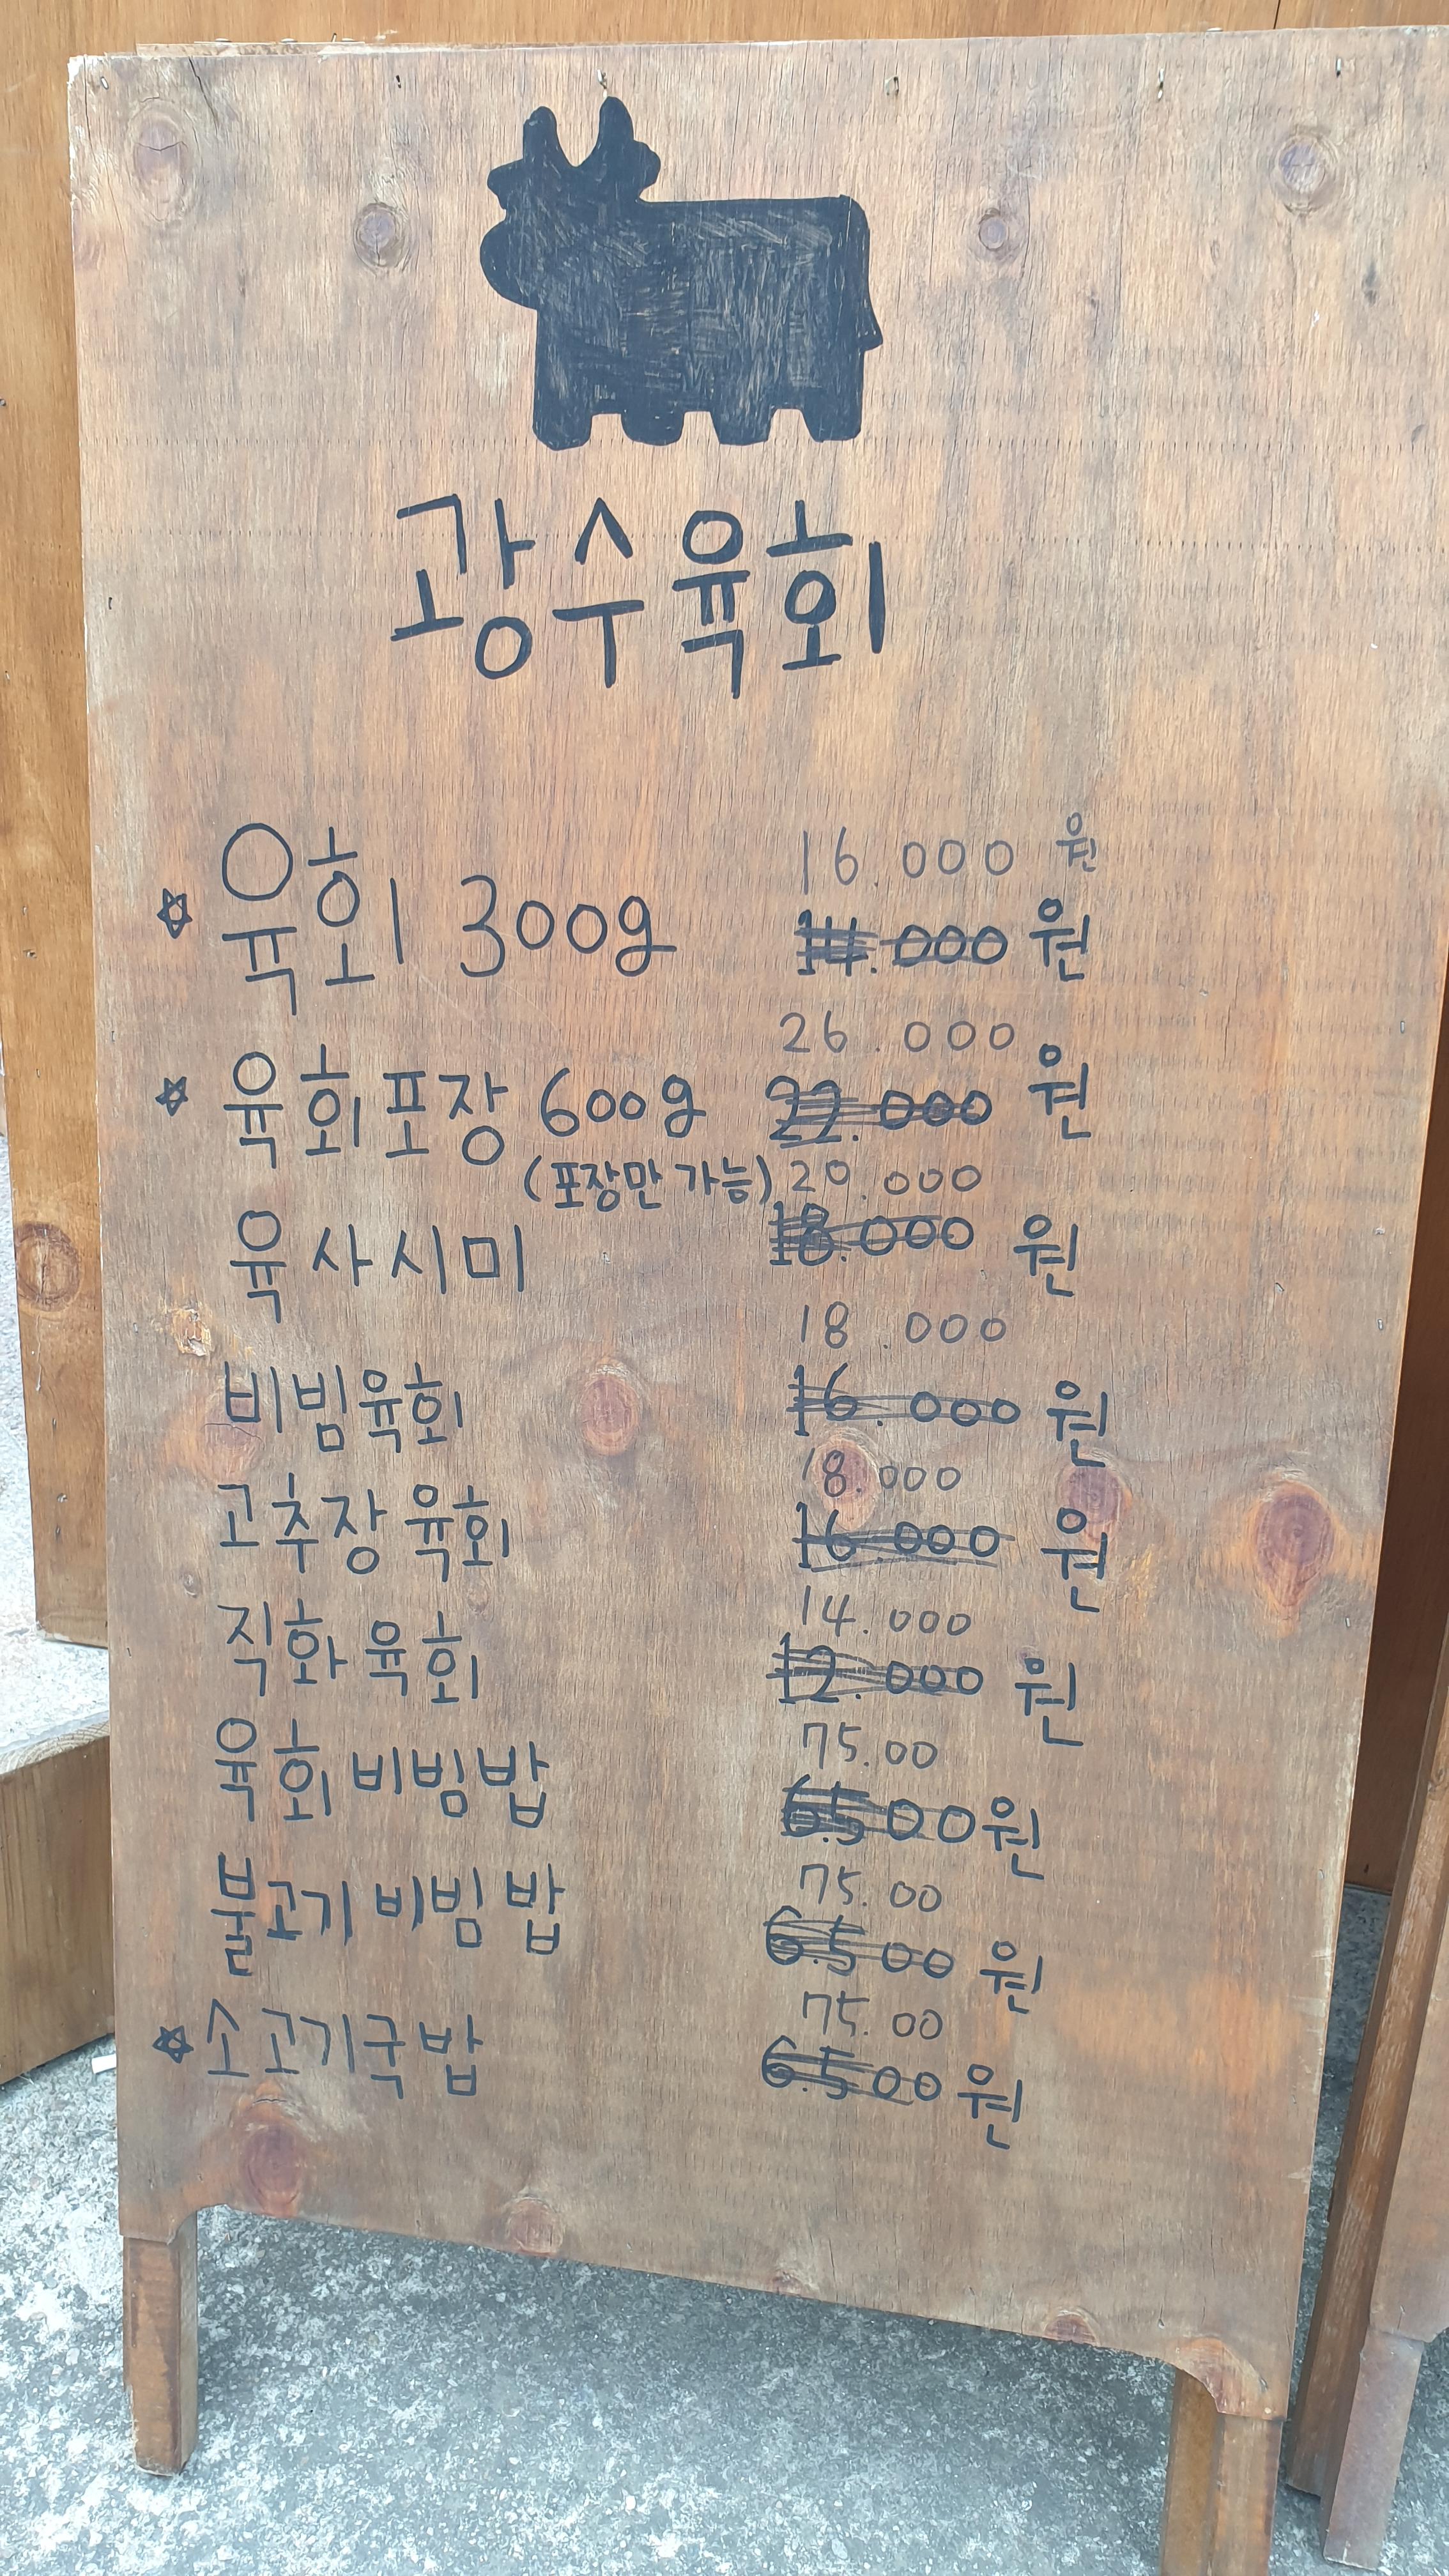 광수육회
16.000 원
☆ 육회 300g 14.000 원
26.000
☆ 육회포장 600g 22.000 원
(포장만 가능) 20.000
육사시미 18.000 원
18.000
비빔육회 16.000 원
18.000
고추장육회 16.000 원
14.000
직화육회 12.000 원
75.00
육회비빔밥 6.500원
75.00
불고기비빔밥 6.500 원
75.00
☆ 소고기국밥 6.500 원